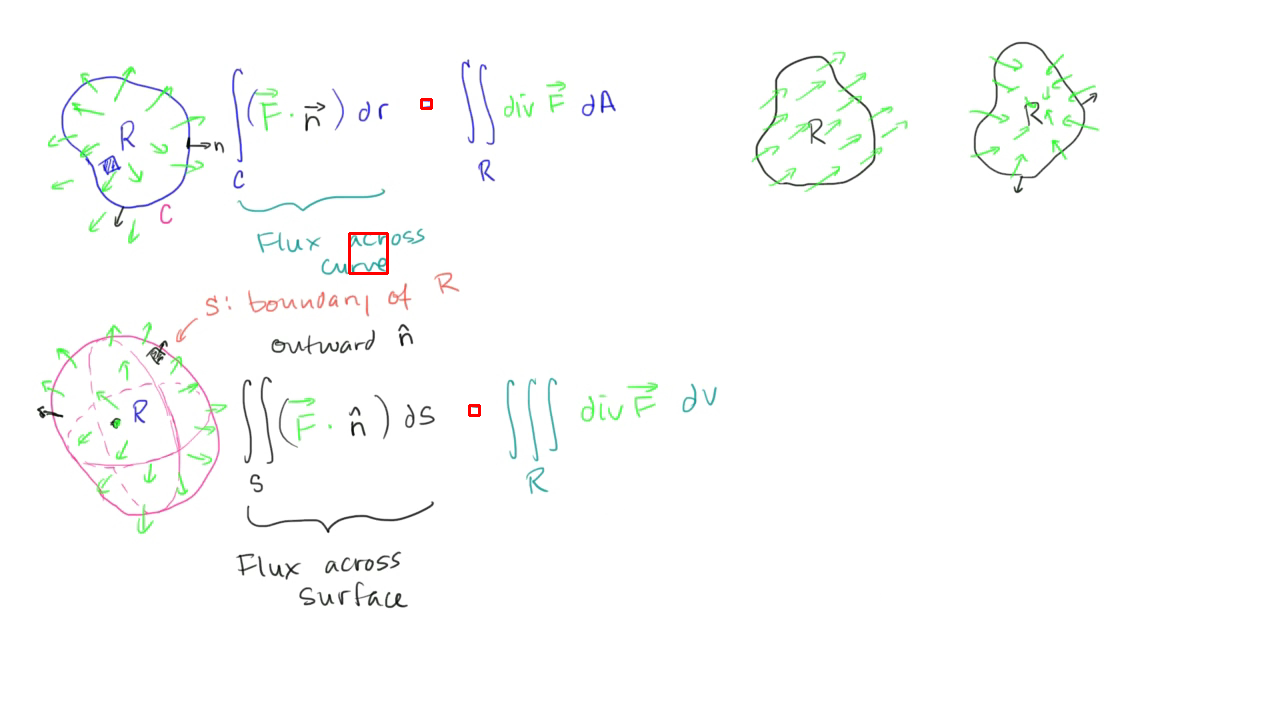 R
n
C
∫_C (F⃗ · n⃗) dr ∬_R div F⃗ dA
Flux across
curve
S: boundary of R
outward n̂
R
∬_S (F⃗ · n̂) dS ∭_R div F⃗ dv
Flux across
surface
R
R